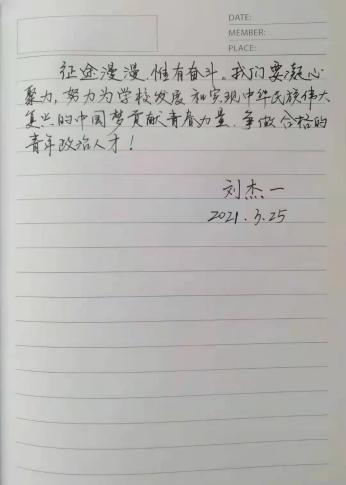 DATE:
MEMBER:
PLACE:
征途漫漫,惟有奋斗。我们要凝心
聚力,努力为学校发展和实现中华民族伟大
复兴的中国梦贡献青春力量,争做合格的
青年政治人才!
刘杰一
2021.3.25